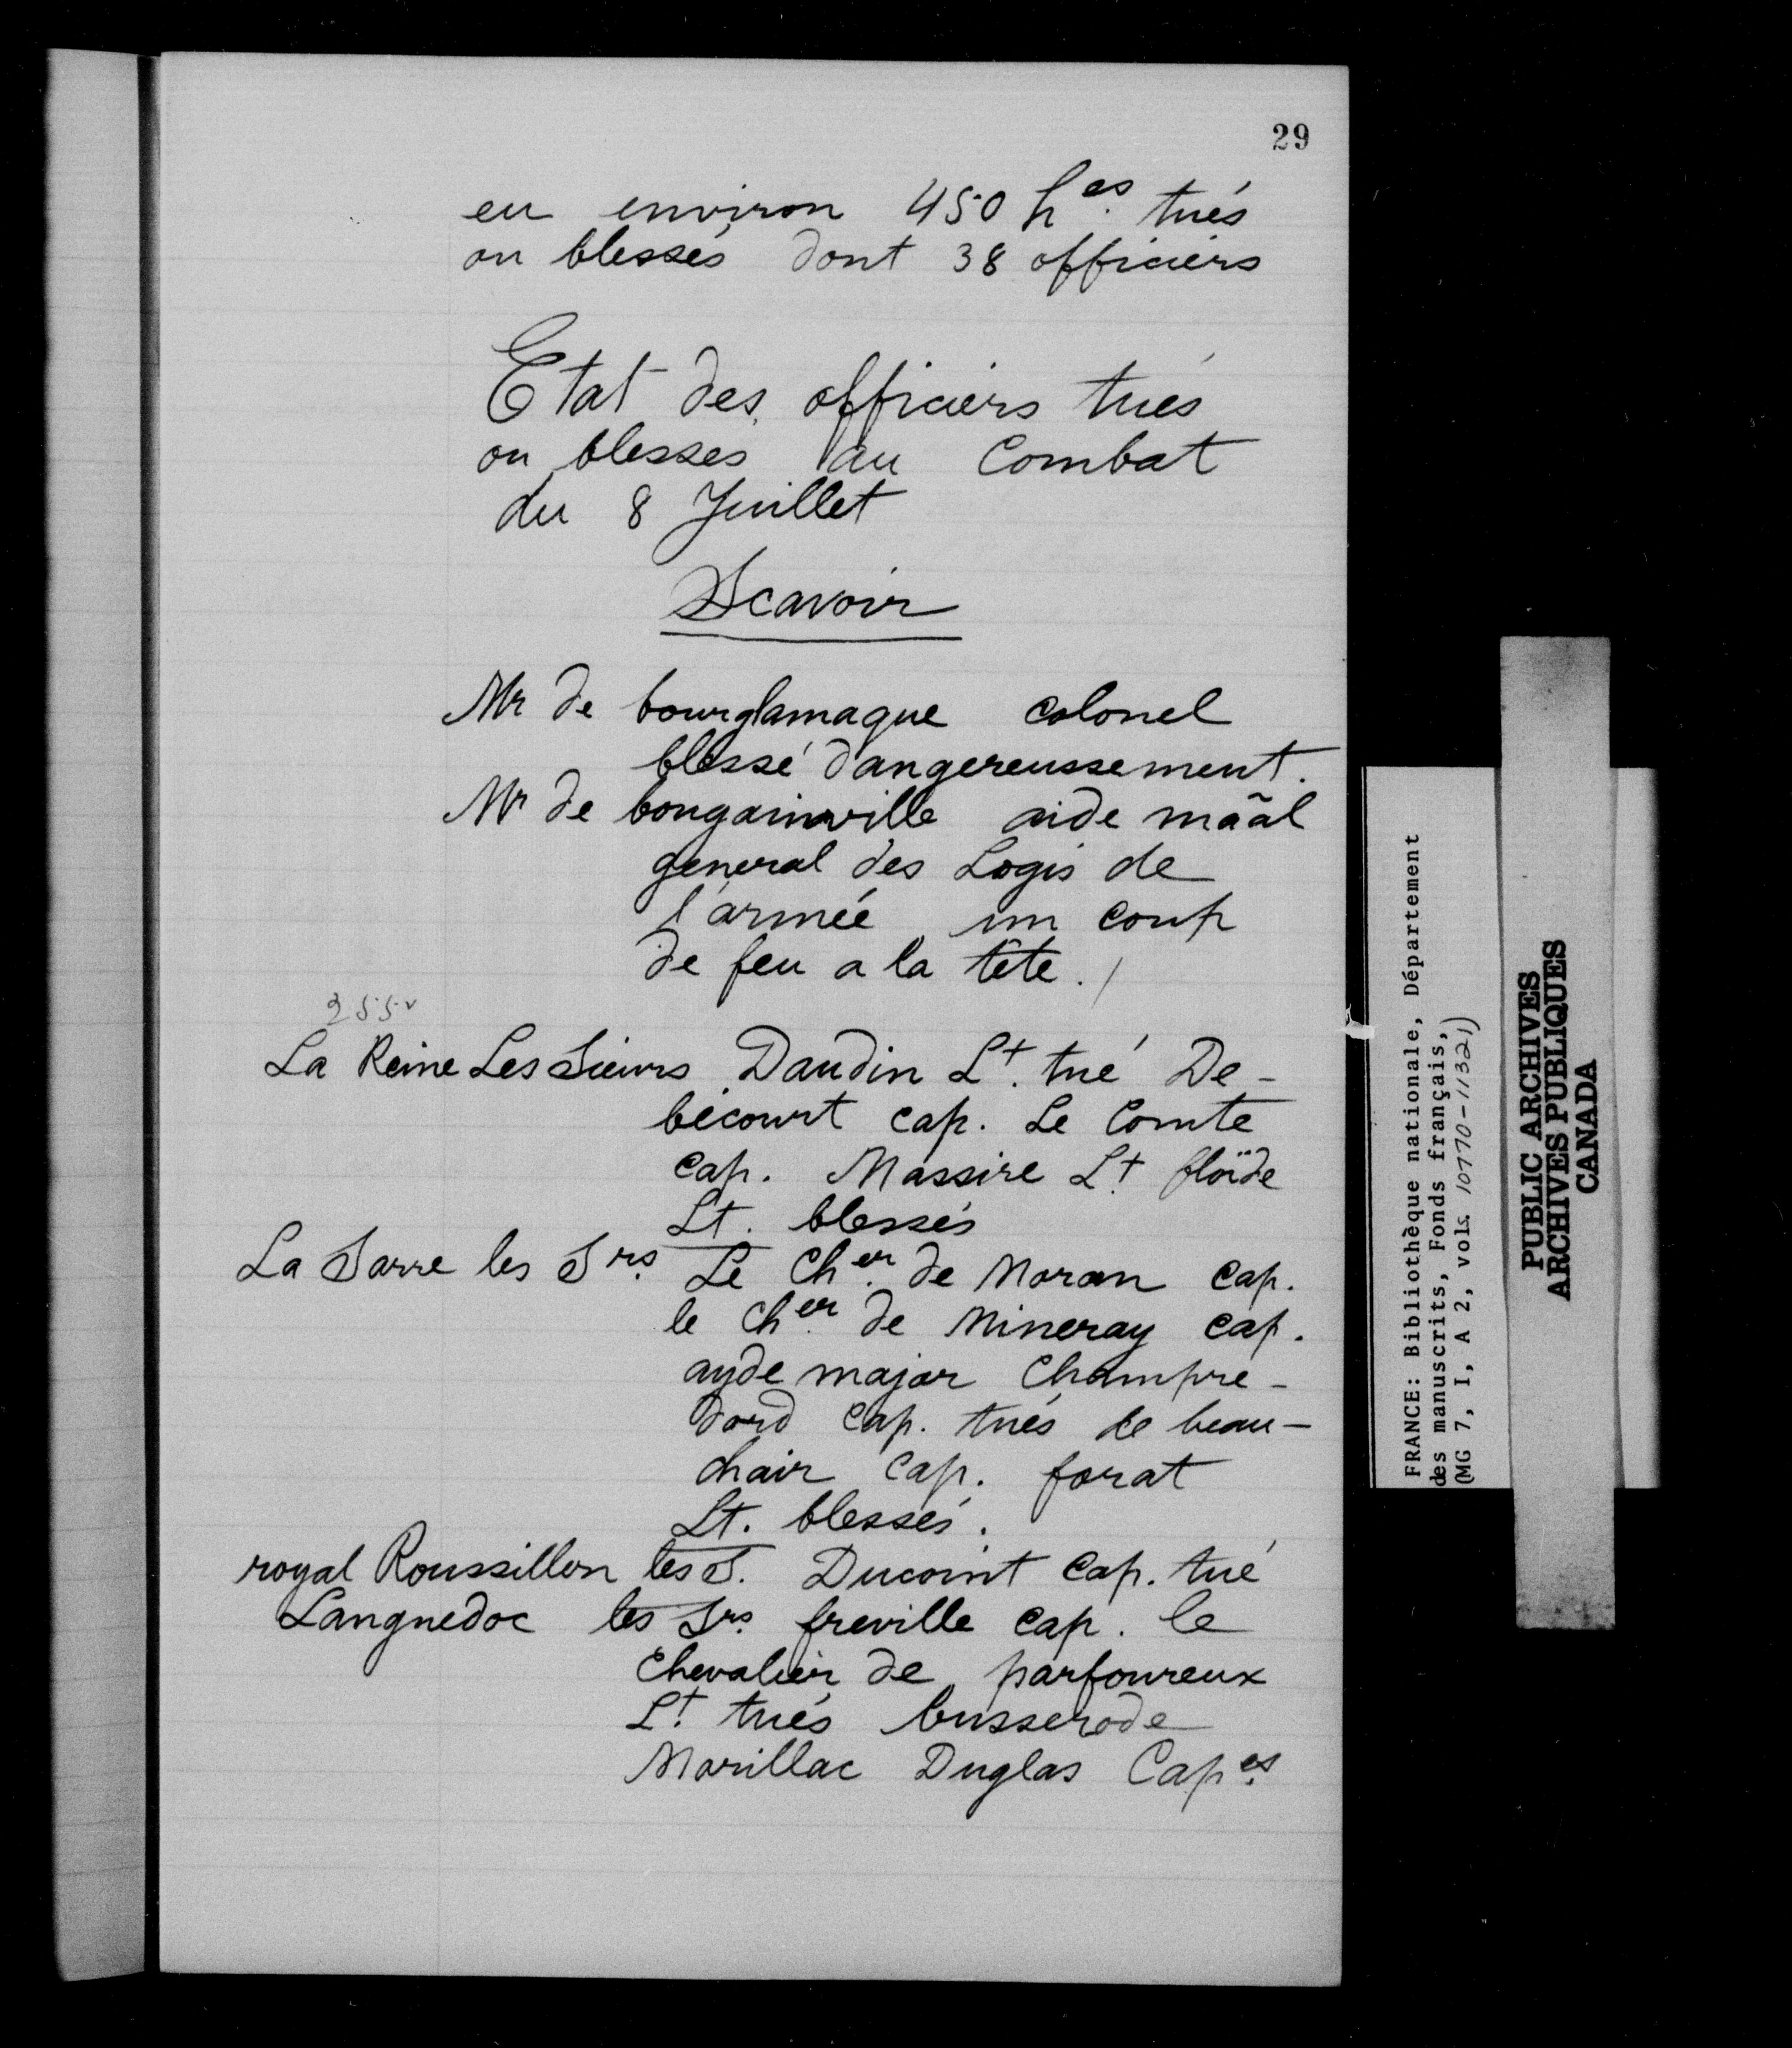 29
eu environ 450 h.es tués
ou blessés dont 38 officiers
Etat des officiers tués
ou blesses au Combat
du 8 Juillet
Scavoir
Mr de bourglamaque colonel
blessé dangereussement.
Mr de bougainville aide mãal
general des Logis de
l'armée un coup
de feu a la tête. /
255v
La Reine Les Sieurs Daudin Lt. tué De-
bécourt cap. Le Comte
cap. Massire Lt. floïde
Lt. blessés
La Sarre les Srs. Le Cher. de Moran cap.
le Cher. de Mineray cap.
ayde major Champre-
dord cap. tués de beau-
chair cap. forat
Lt. blessés.
royal Roussillon les S. Ducoint cap. tué
Languedoc les Srs. freville cap. le
Chevalier de parfoureux
Lt. tués busserode
Marillac Duglas Cap.es
FRANCE: Bibliothèque nationale, Département
des manuscrits, Fonds français,
(MG 7, I, A 2, vols. 10770-11321)
PUBLIC ARCHIVES
ARCHIVES PUBLIQUES
CANADA